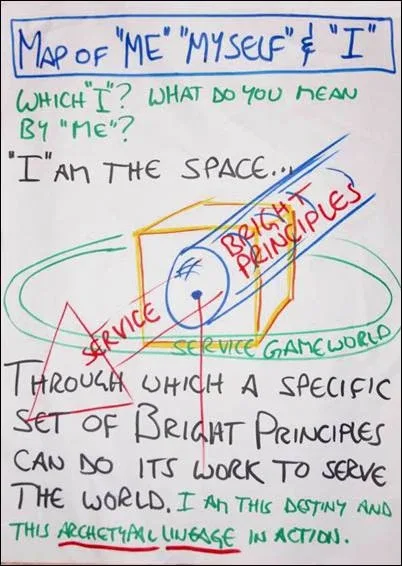 MAP OF "ME" "MYSELF" & "I"
WHICH "I"? WHAT DO YOU MEAN
BY "ME"?
"I" AM THE SPACE...
BRIGHT
PRINCIPLES
SERVICE
SERVICE GAMEWORLD
THROUGH WHICH A SPECIFIC
SET OF BRIGHT PRINCIPLES
CAN DO ITS WORK TO SERVE
THE WORLD. I AM THIS DESTINY AND
THIS ARCHETYPAL LINEAGE IN ACTION.